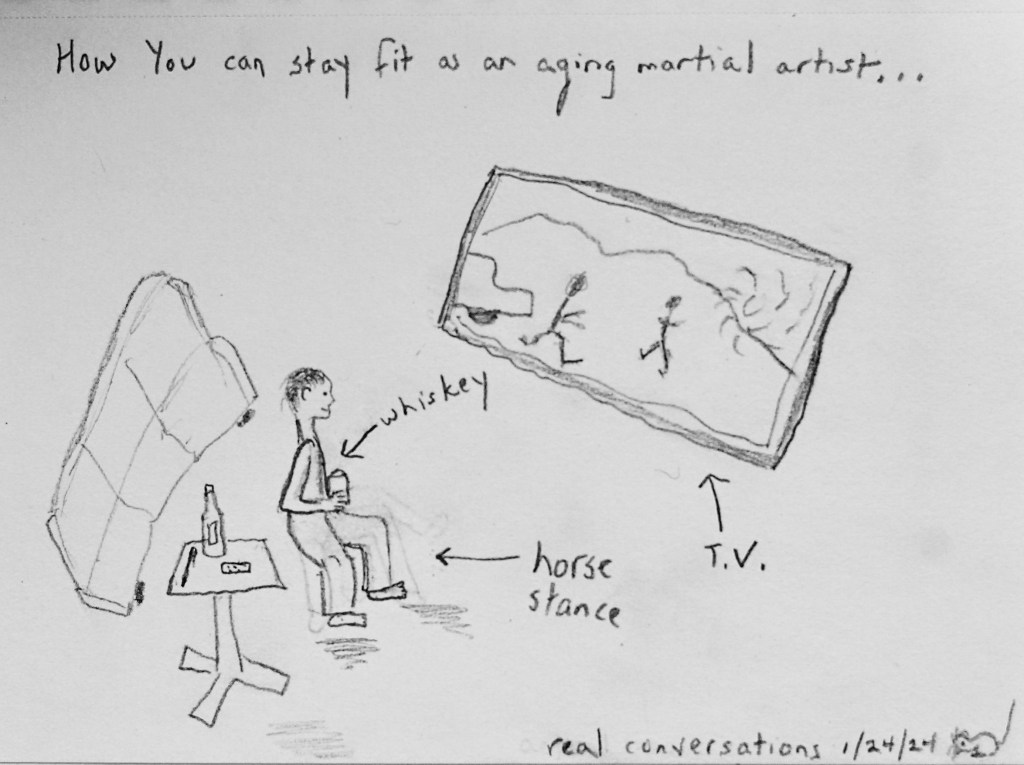 How You can stay fit as an aging martial artist...
whiskey
T.V.
horse
stance
real conversations 1/24/24